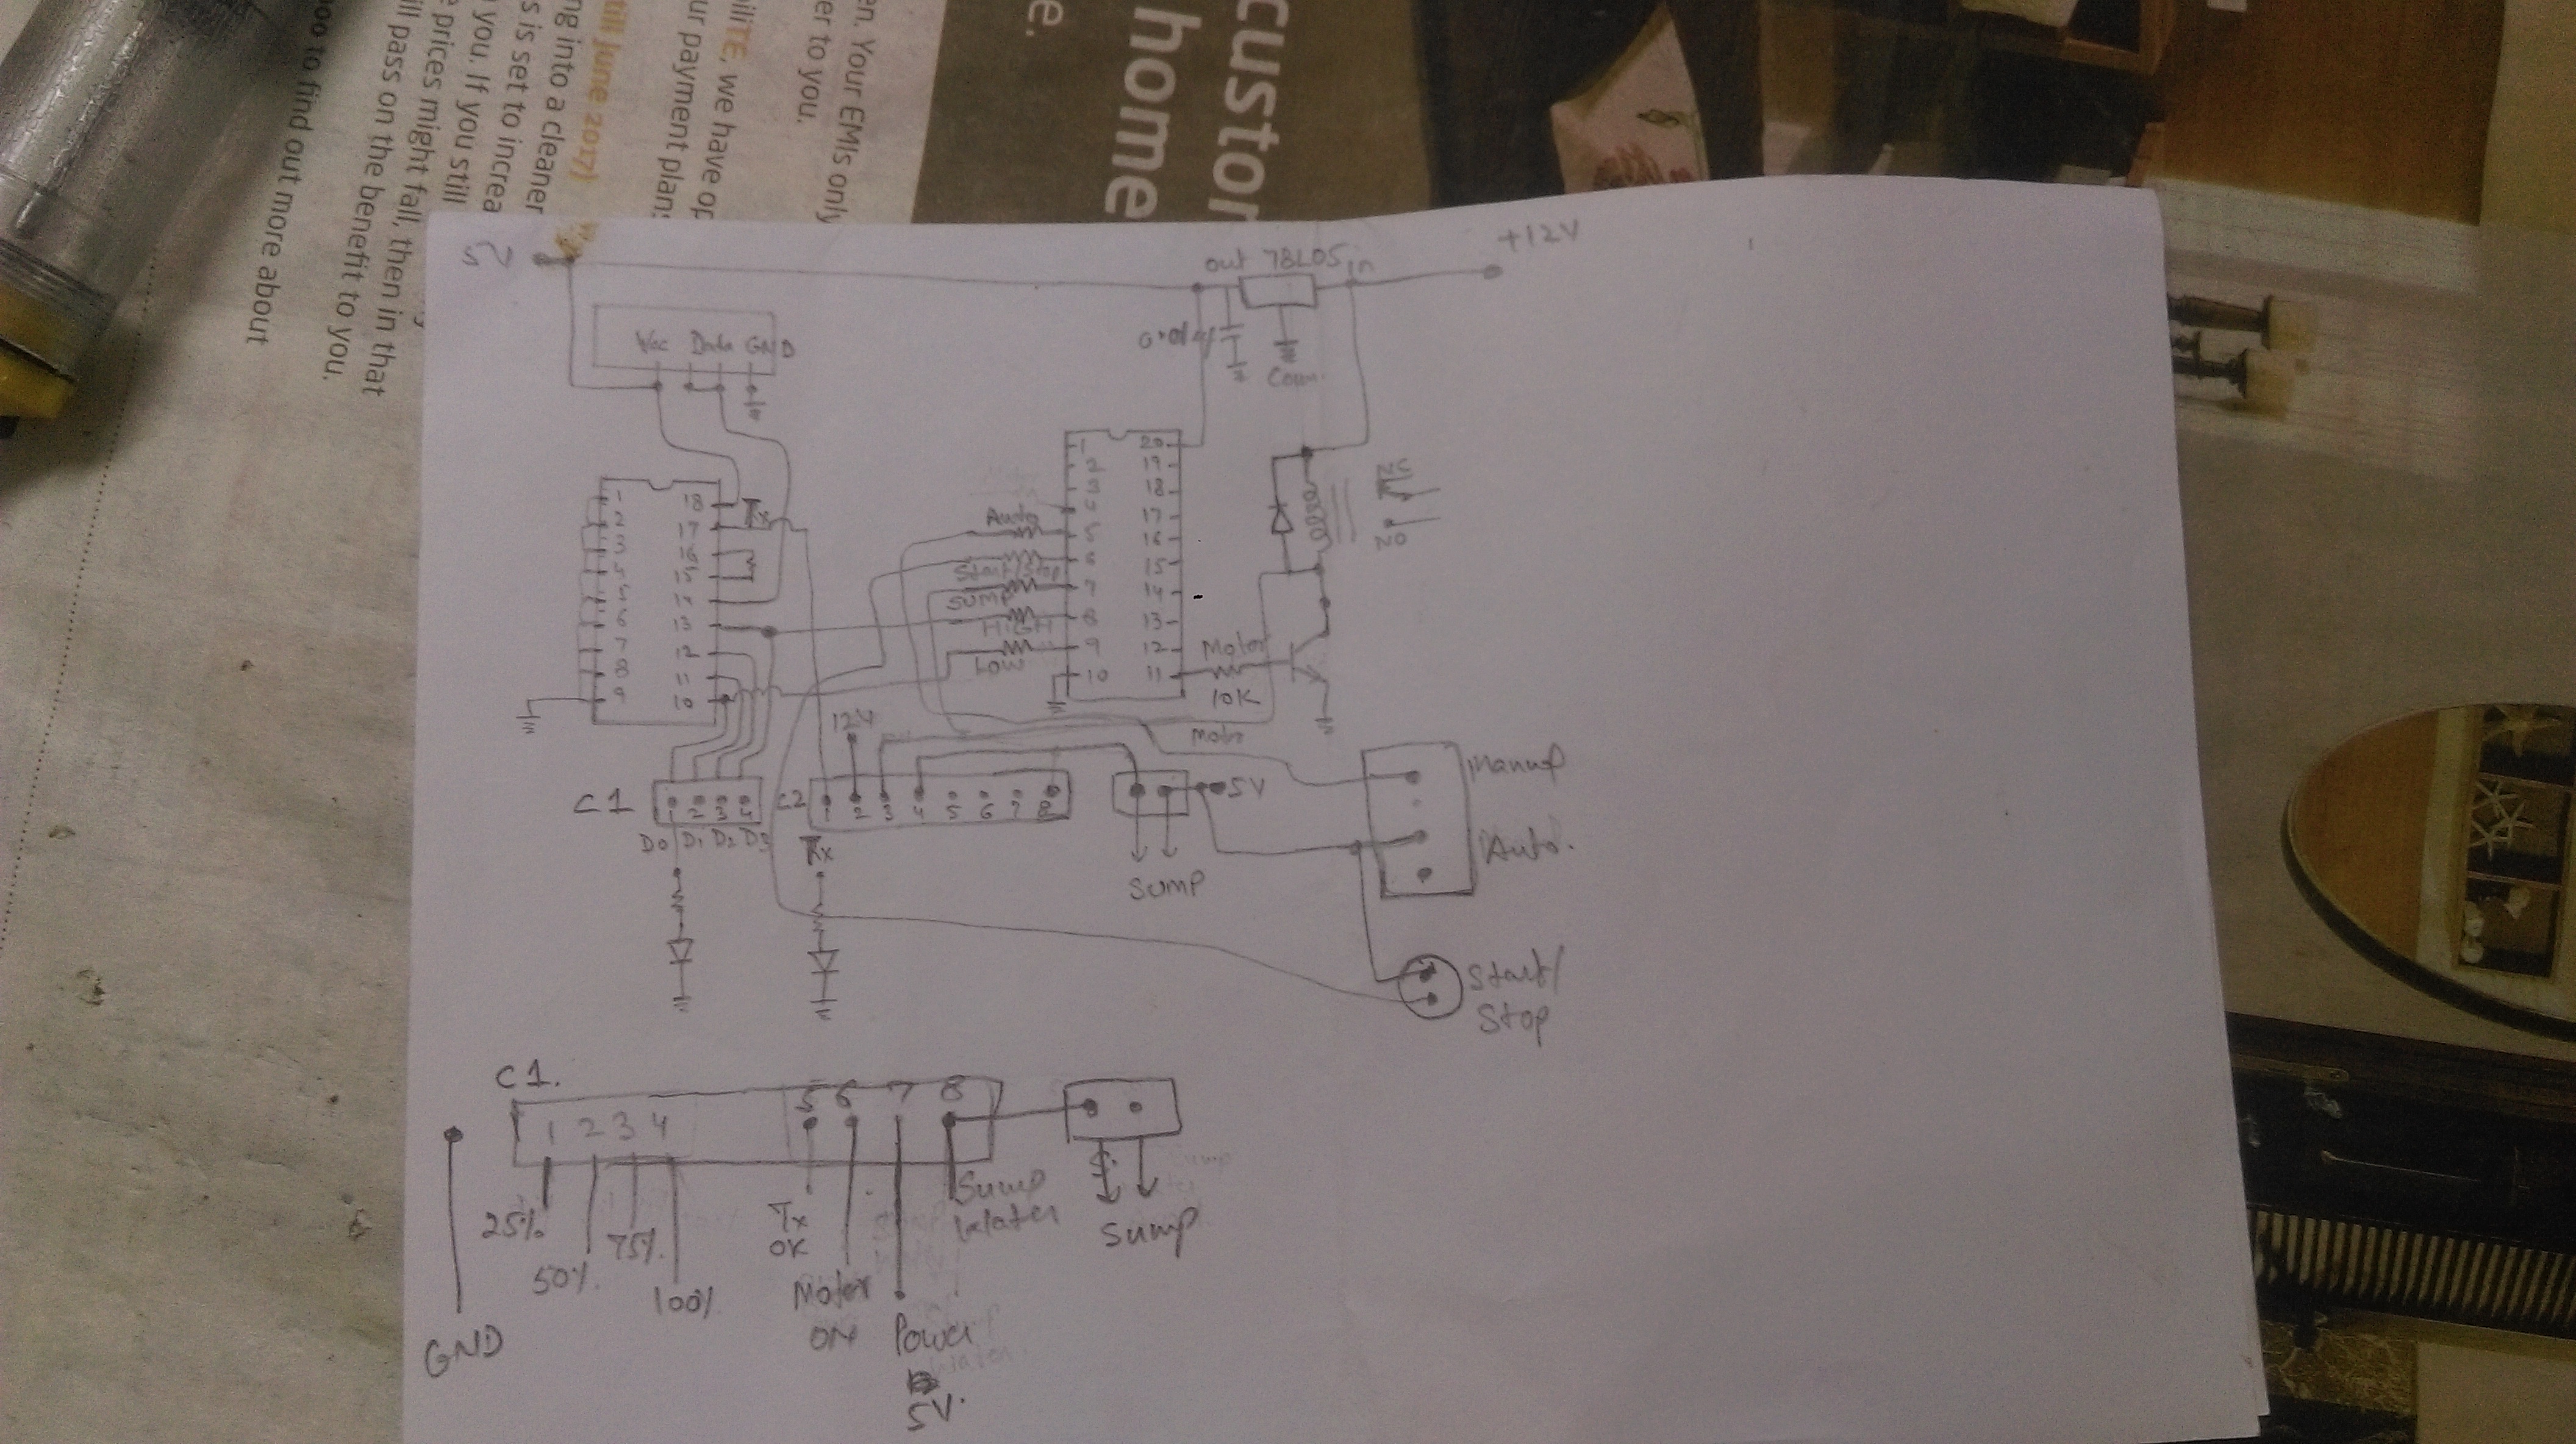 custor
home
e.
en. Your EMIs only
er to you.
ilITE, we have op
ur payment plan
till June 2017)
ng into a cleaner
s is set to increa
you. If you still
e prices might fall, then in that
ill pass on the benefit to you.
000 to find out more about
5V
out 78L05 in
+12V
Vcc Data GND
Com.
1 20
2 19
3 18
17
5 16
6 15
7 14
8 13
9 12
10 11
Auto
Start/Stop
SUMP
HIGH
LOW
Motor
10K
NC
NO
1 18
2 17
3 16
15
6 13
7 12
8 11
9 10
Tx
12V
Motor
C1
1 2 3 4
D0 D1 D2 D3
C2
1 2 3 4 5 6 7 8
Tx
5V
SUMP
Manual
Auto.
Start/
Stop
C1.
1 2 3 4 5 6 7 8
25%
50%.
75%.
100%
Tx
OK
Motor
ON
Power
5V.
Sump
Water
Sump
GND